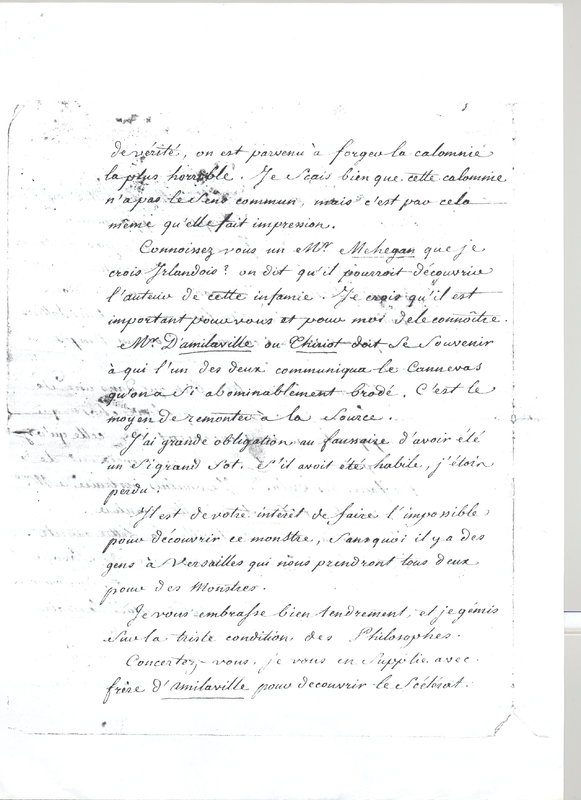 de vérité, on est parvenu à forger la calomnie
la plus horrible. Je scais bien que cette calomnie
n'a pas le sens commun, mais c'est par cela
même qu'elle fait impression.
Connoissez vous un Mr. Mehegan que je
crois Irlandois? on dit qu'il pourroit découvrir
l'auteur de cette infamie. Je crois qu'il est
important pour vous et pour moi de le connoître.
Mr. D'amilaville ou Thiriot doit se souvenir
à qui l'un des deux communiqua le Cannevas
qu'on a si abominablement brodé. C'est le
moyen de remonter à la source.
J'ai grande obligation au faussaire d'avoir été
un si grand sot. s'il avoit été habile, j'étois
perdu.
Il est de votre intérêt de faire l'impossible
pour découvrir ce monstre, sans quoi il y a des
gens à Versailles qui nous prendront tous deux
pour des Monstres.
Je vous embrasse bien tendrement, et je gémis
sur la triste condition des Philosophes.
Concertez-vous, je vous en supplie avec
frère d'amilaville pour decouvrir le Scélérat.